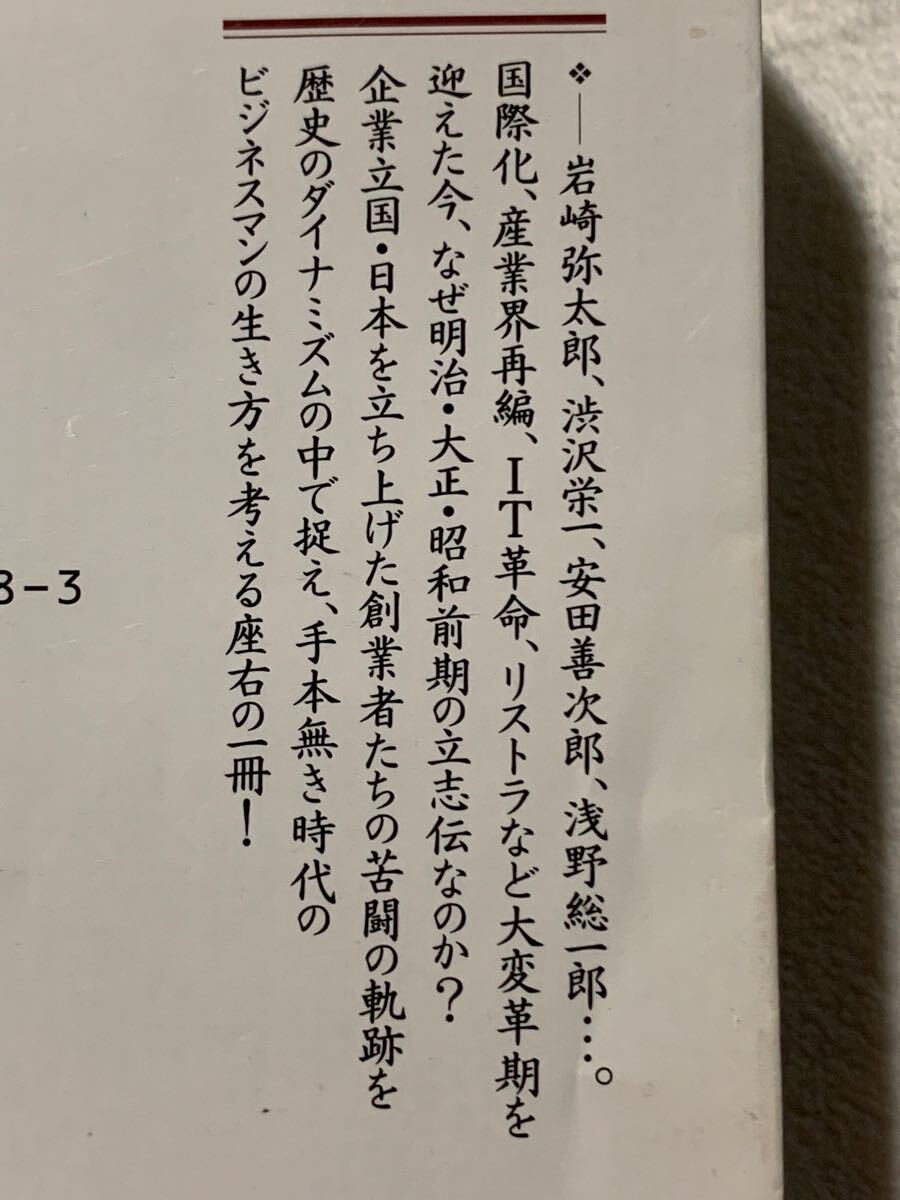 ❖――岩崎弥太郎、渋沢栄一、安田善次郎、浅野総一郎…。
国際化、産業界再編、IT革命、リストラなど大変革期を
迎えた今、なぜ明治・大正・昭和前期の立志伝なのか？
企業立国・日本を立ち上げた創業者たちの苦闘の軌跡を
歴史のダイナミズムの中で捉え、手本無き時代の
ビジネスマンの生き方を考える座右の一冊！
8-3